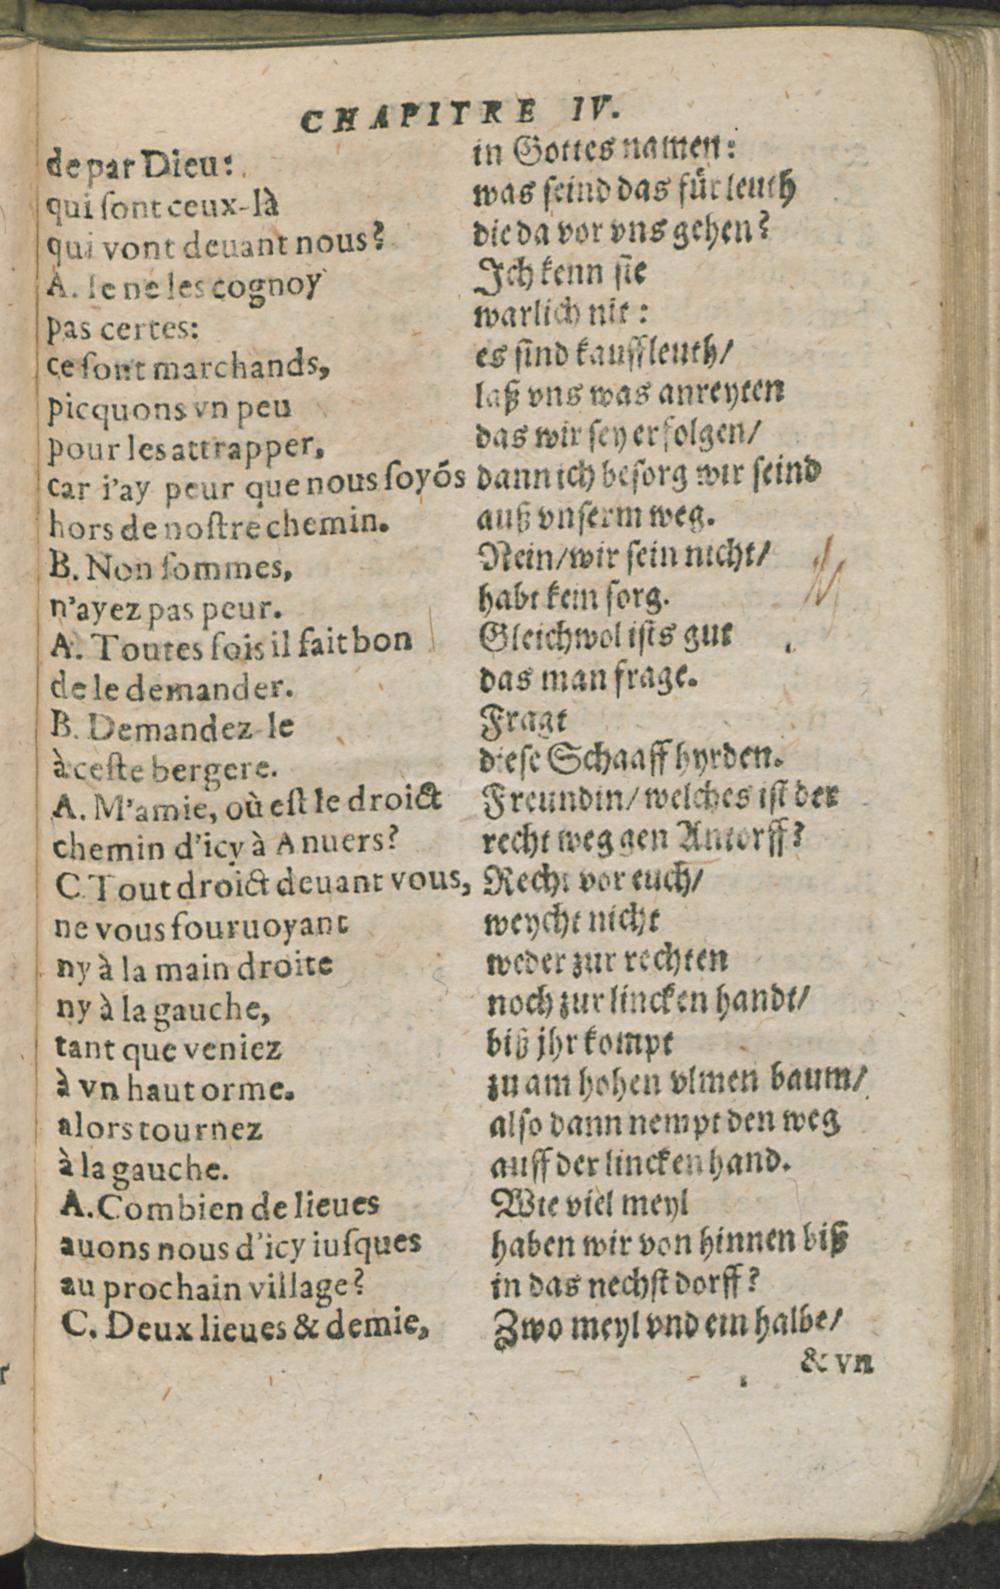 CHAPITRE IV.
de par Dieu:
qui ſont ceux-là
qui vont deuant nous?
A. Ie ne les cognoy
pas certes:
ce ſont marchands,
picquons vn peu
pour les attrapper,
car i'ay peur que nous ſoyõs
hors de noſtre chemin.
B. Non ſommes,
n'ayez pas peur.
A. Toutes fois il fait bon
de le demander.
B. Demandez-le
à ceſte bergere.
A. M'amie, où eſt le droict
chemin d'icy à Anuers?
C. Tout droict deuant vous,
ne vous fouruoyant
ny à la main droite
ny à la gauche,
tant que veniez
à vn haut orme.
alors tournez
à la gauche.
A. Combien de lieues
auons nous d'icy iuſques
au prochain village?
C. Deux lieues & demie,
in Gottes namen:
was ſeind das für leuth
die da vor vns gehen?
Ich kenn ſie
warlich nit:
es ſind kauffleuth/
laß vns was anreyten
das wir ſey erfolgen/
dann ich beſorg wir ſeind
auß vnſerm weg.
Nein/wir ſein nicht/
habt kein ſorg.
Gleichwol iſts gut
das man frage.
Fragt
dieſe Schaaffhyrden.
Freundin/welches iſt der
recht weg gen Antorff?
Recht vor euch/
weycht nicht
weder zur rechten
noch zur lincken handt/
biß jhr kompt
zu am hohen vlmen baum/
alſo dann nempt den weg
auff der lincken hand.
Wie viel meyl
haben wir von hinnen biß
in das nechſt dorff?
Zwo meyl vnd ein halbe/
& vn